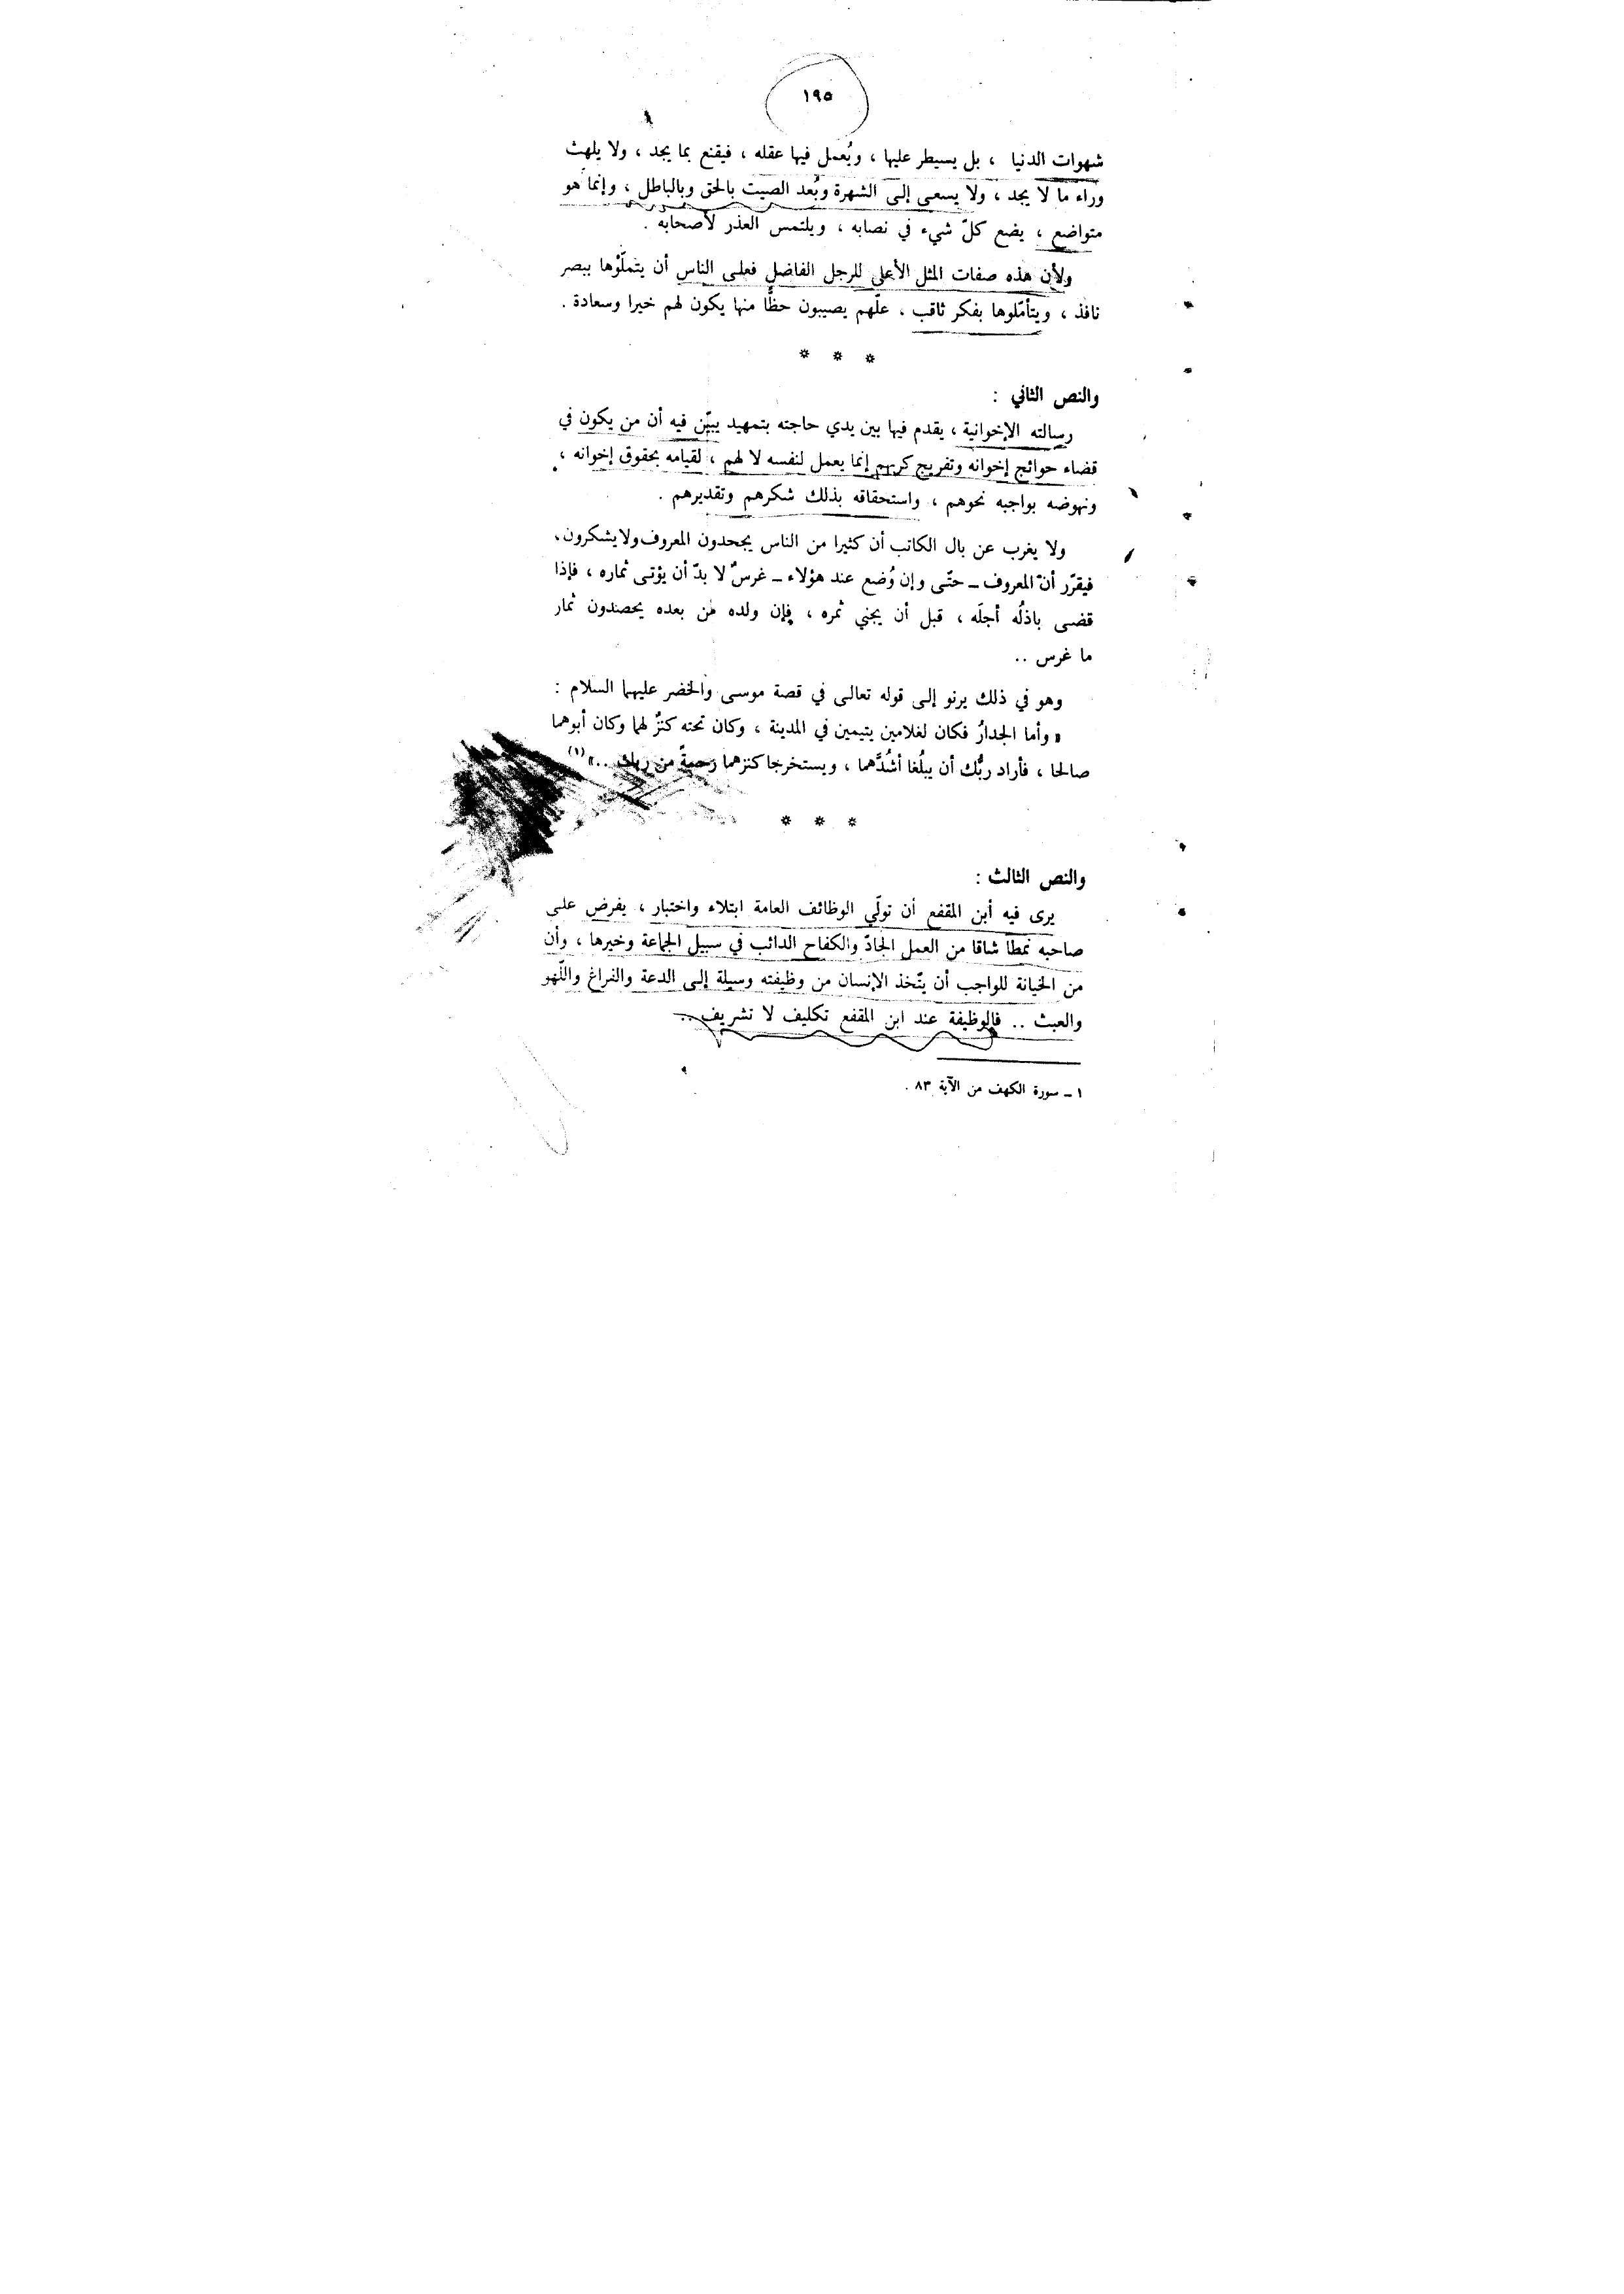 ١٩٥
شهوات الدنيا ، بل يسيطر عليها ، ويُعمل فيها عقله ، فيقنع بما يجد ، ولا يلهث
وراء ما لا يجد ، ولا يسعى إلى الشهرة وبُعد الصيت بالحق وبالباطل ، وإنما هو
متواضع ، يضع كلّ شيء في نصابه ، ويلتمس العذر لأصحابه .
ولأن هذه صفات المثل الأعلى للرجل الفاضل فعلى الناس أن يتملّوْها ببصر
نافذ ، ويتأمّلوها بفكر ثاقب ، علّهم يصيبون حظًّا منها يكون لهم خيرا وسعادة .
* * *
والنص الثاني :
رسالته الإخوانية ، يقدم فيها بين يدي حاجته بتمهيد يبيّن فيه أن من يكون في
قضاء حوائج إخوانه وتفريج كربهم إنما يعمل لنفسه لا لهم ، لقيامه بحقوق إخوانه ،
ونهوضه بواجبه نحوهم ، واستحقاقه بذلك شكرهم وتقديرهم .
ولا يغرب عن بال الكاتب أن كثيرا من الناس يجحدون المعروف ولا يشكرون،
فيقرّر أنّ المعروف ــ حتّى وإن وُضع عند هؤلاء ــ غرسٌ لا بدّ أن يؤتى ثماره ، فإذا
قضى باذلُه أجلَه ، قبل أن يجني ثمره ، فإن ولده من بعده يحصدون ثمار
ما غرس ..
وهو في ذلك يرنو إلى قوله تعالى في قصة موسى والخضر عليهما السلام :
« وأما الجدارُ فكان لغلامين يتيمين في المدينة ، وكان تحته كنزٌ لهما وكان أبوهما
صالحا ، فأراد ربُّك أن يبلُغا أشُدَّهما ، ويستخرجا كنزهما رحمةً من ربك ..» (١)
* * *
والنص الثالث :
يرى فيه أبن المقفع أن تولّي الوظائف العامة ابتلاء واختبار ، يفرض على
صاحبه نمطا شاقا من العمل الجادّ والكفاح الدائب في سبيل الجماعة وخيرها ، وأن
من الخيانة للواجب أن يتّخذ الإنسان من وظيفته وسيلة إلى الدعة والفراغ واللّهو
والعبث .. فالوظيفة عند ابن المقفع تكليف لا تشريف ..
١ ــ سورة الكهف من الآية ٨٣ .